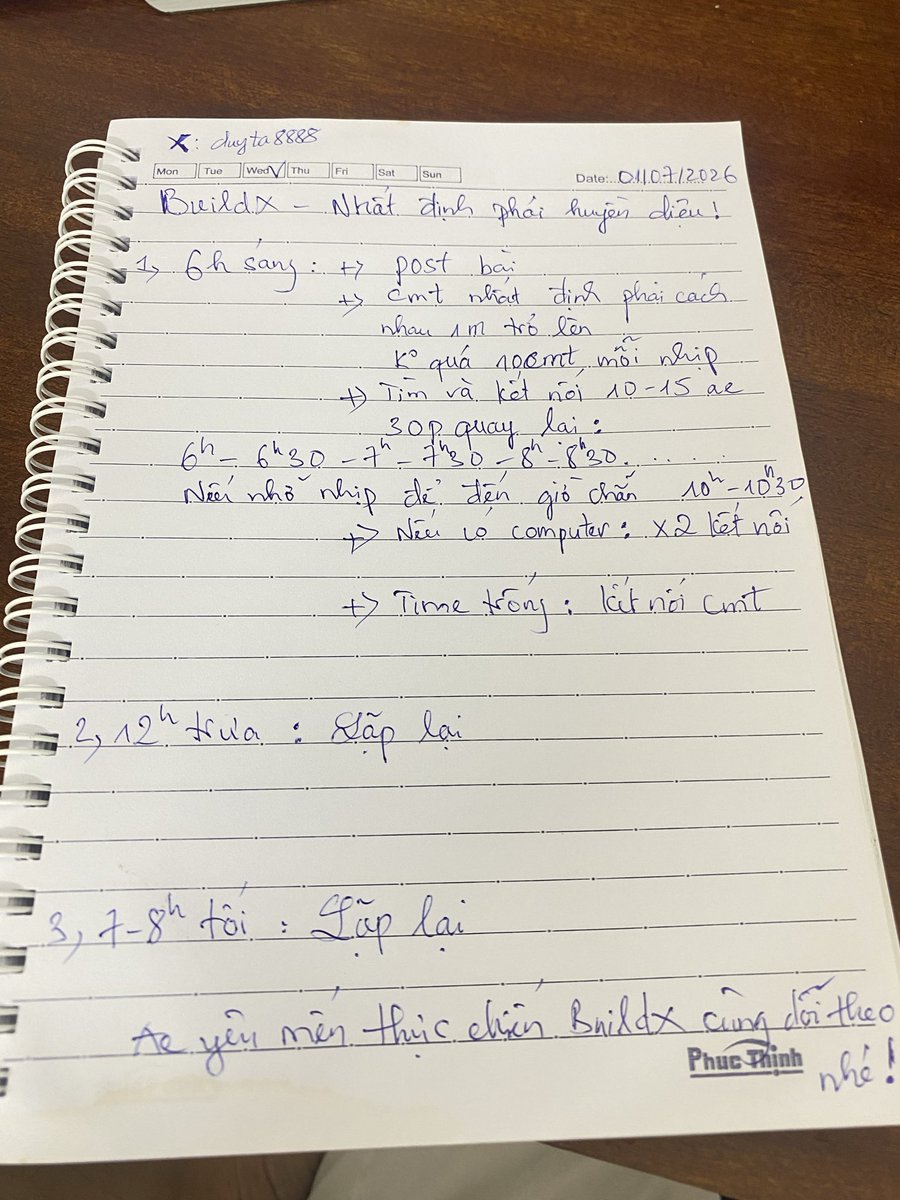 X: duyta8888
Mon Tue Wed Thu Fri Sat Sun
Date: 01/07/2026
BuildX - Nhất định phải huyền diệu!
1, 6h sáng: +> post bài
+> cmt nhất định phải cách
nhau 1m trở lên
K° quá 10cmt, mỗi nhịp
+> Tìm và kết nối 10-15 ae
30p quay lại:
6h - 6h30 - 7h - 7h30 - 8h - 8h30.....
Nếu nhỡ nhịp để đến giờ chẵn 10h-10h30
+> Nếu có computer: x2 kết nối
+> Time trống: kết nối cmt
2, 12h trưa: Lặp lại
3, 7-8h tối: Lặp lại
Ae yêu mến thực chiến BuildX cùng dõi theo
nhé!
Phuc Thịnh